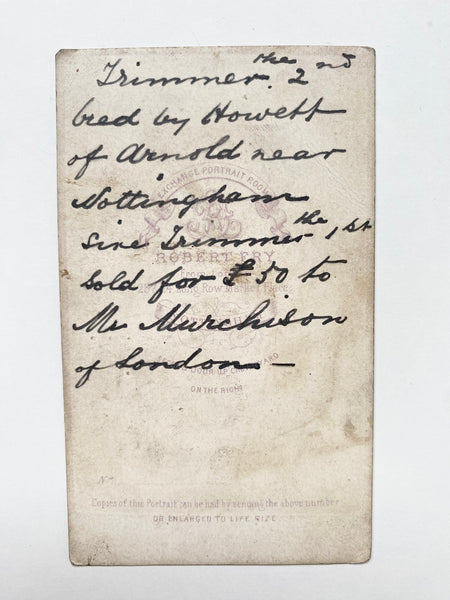 Trimmer the 2nd
bred by Howett
of Arnold near
EXCHANGE PORTRAIT ROOMS
Nottingham
Sire Trimmer the 1st
ROBERT FRY
Sold for £50 to
Long Row Market Place
Mr Murchison
of London —
DOOR UP YARD
ON THE RIGHT
No
Copies of this Portrait can be had by sending the above number
OR ENLARGED TO LIFE SIZE